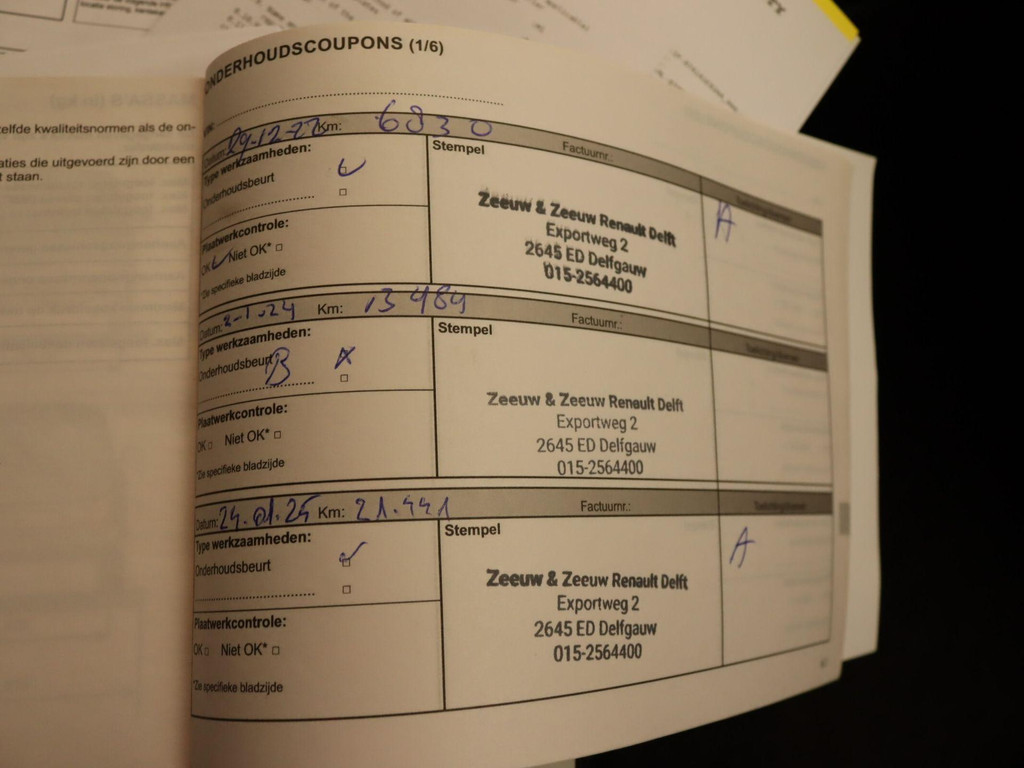 ONDERHOUDSCOUPONS (1/6)
elfde kwaliteitsnormen als de on-
aties die uitgevoerd zijn door een
t staan.
Datum: 29-12-22 Km: 6830
Factuurnr.:
Type werkzaamheden:
Onderhoudsbeurt
Plaatwerkcontrole:
OK Niet OK*
*De specifieke bladzijde
Stempel
Zeeuw & Zeeuw Renault Delft
Exportweg 2
2645 ED Delfgauw
015-2564400
A
Datum: 2-1-24 Km: 13484
Factuurnr.:
Type werkzaamheden:
Onderhoudsbeurt
B
Plaatwerkcontrole:
OK Niet OK*
*De specifieke bladzijde
Stempel
Zeeuw & Zeeuw Renault Delft
Exportweg 2
2645 ED Delfgauw
015-2564400
Datum: 24.01.25 Km: 21.441
Factuurnr.:
Type werkzaamheden:
Onderhoudsbeurt
Plaatwerkcontrole:
OK Niet OK*
*De specifieke bladzijde
Stempel
Zeeuw & Zeeuw Renault Delft
Exportweg 2
2645 ED Delfgauw
015-2564400
A